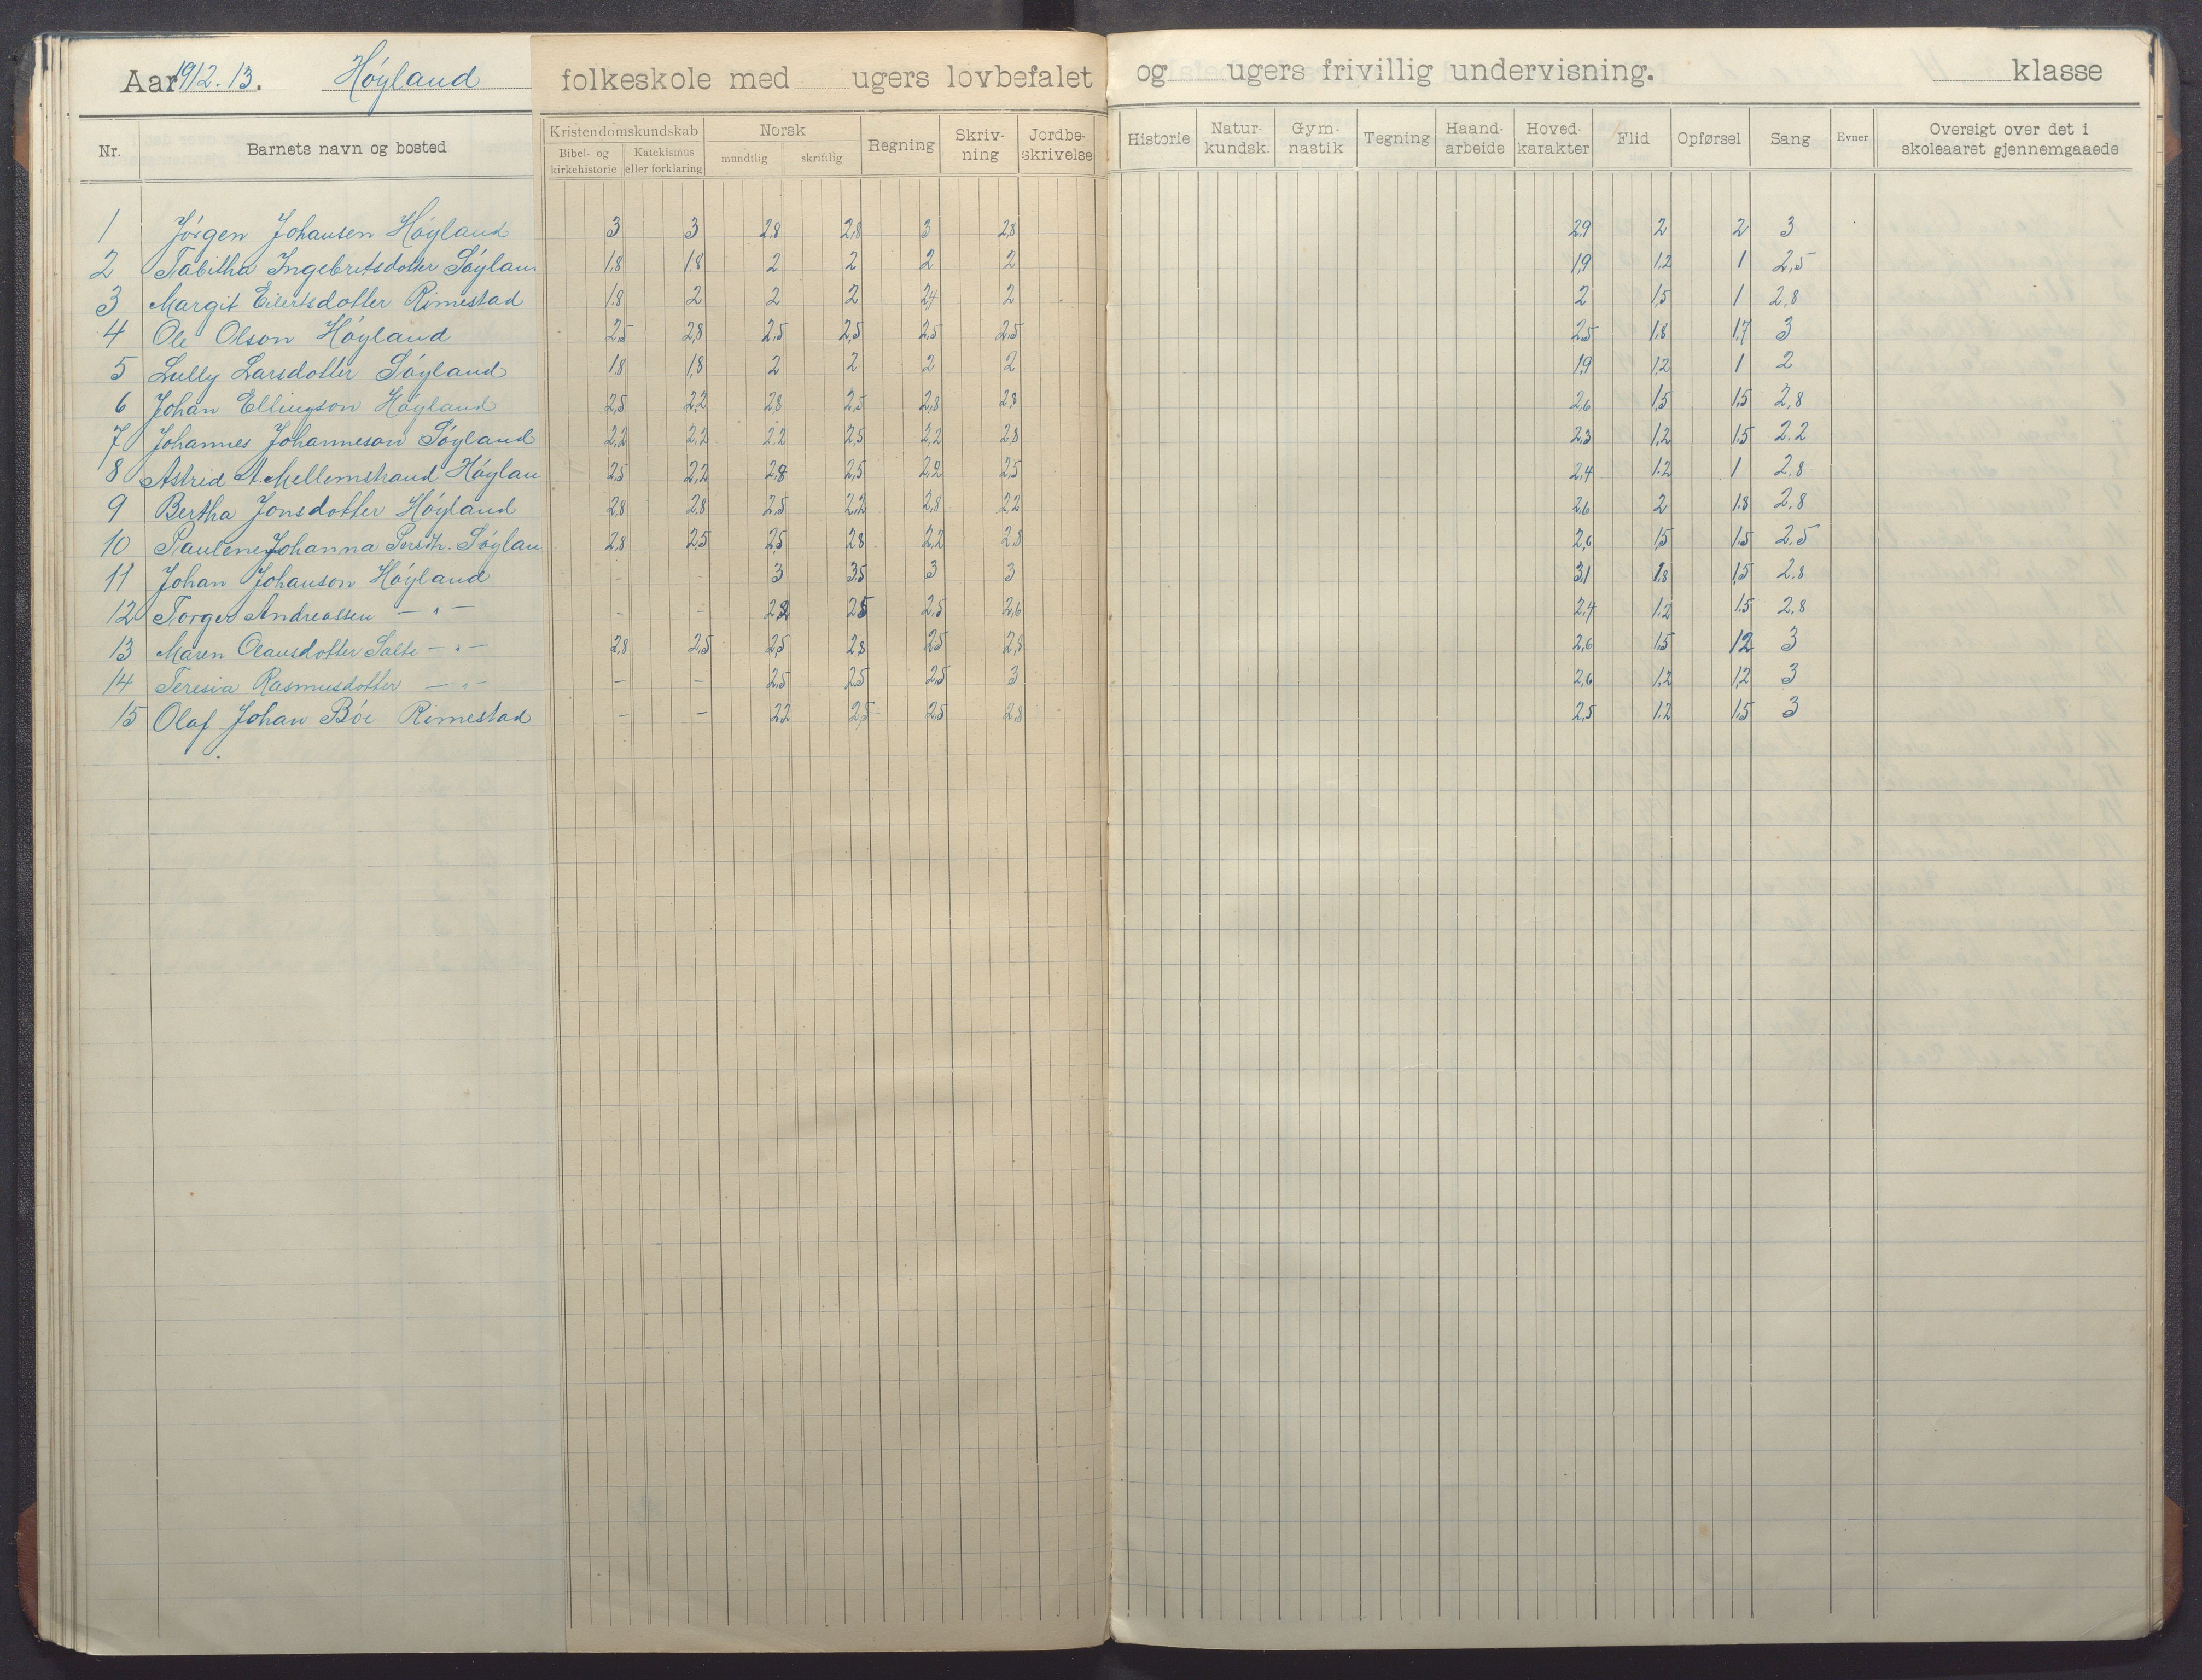 Aar 1912.13. Höyland folkeskole med ugers lovbefalet og ugers frivillig undervisning. klasse
Nr. Barnets navn og bosted Kristendomskundskab Bibel- og kirkehistorie Katekismus eller forklaring Norsk mundtlig skriftlig Regning Skriv-ning Jordbe-skrivelse Historie Natur-kundsk. Gym-nastik Tegning Haand-arbeide Hoved-karakter Flid Opførsel Sang Evner Oversigt over det i skoleaaret gjennemgaaede
1 Jörgen Johansen Höyland 3 3 2,8 2,8 3 2,8 2,9 2 2 3
2 Tabitha Ingebretsdotter Söylan 1,8 1,8 2 2 2 2 1,9 1,2 1 2,5
3 Margit Eilertsdotter Rimestad 1,8 2 2 2 2,4 2 2 1,5 1 2,8
4 Ole Olson Höyland 2,5 2,8 2,5 2,5 2,5 2,5 2,5 1,8 1,7 3
5 Lully Larsdotter Söyland 1,8 1,8 2 2 2 2 1,9 1,2 1 2
6 Johan Ellingson Höyland 2,5 2,2 2,8 2,5 2,8 2,8 2,6 1,5 1,5 2,8
7 Johannes Johanneson Söyland 2,2 2,2 2,2 2,5 2,2 2,8 2,3 1,2 1,5 2,2
8 Astrid A. Mellemstrand Höylan 2,5 2,2 2,8 2,5 2,2 2,5 2,4 1,2 1 2,8
9 Bertha Jonsdotter Höyland 2,8 2,8 2,5 2,2 2,8 2,2 2,6 2 1,8 2,8
10 Paulene Johanna Persdtr. Söylan 2,8 2,5 2,5 2,8 2,2 2,8 2,6 1,5 1,5 2,5
11 Johan Johanson Höyland - 3 3,5 3 3 3,1 1,8 1,5 2,8
12 Torger Andreassen - " - - - 2,2 2,5 2,5 2,6 2,4 1,2 1,5 2,8
13 Maren Olausdotter Salte - " - 2,8 2,5 2,5 2,8 2,5 2,8 2,6 1,5 1,2 3
14 Teresia Rasmusdotter - " - - - 2,5 2,5 2,5 3 2,6 1,2 1,2 3
15 Olaf Johan Böe Rimestad - - 2,2 2,5 2,5 2,8 2,5 1,2 1,5 3